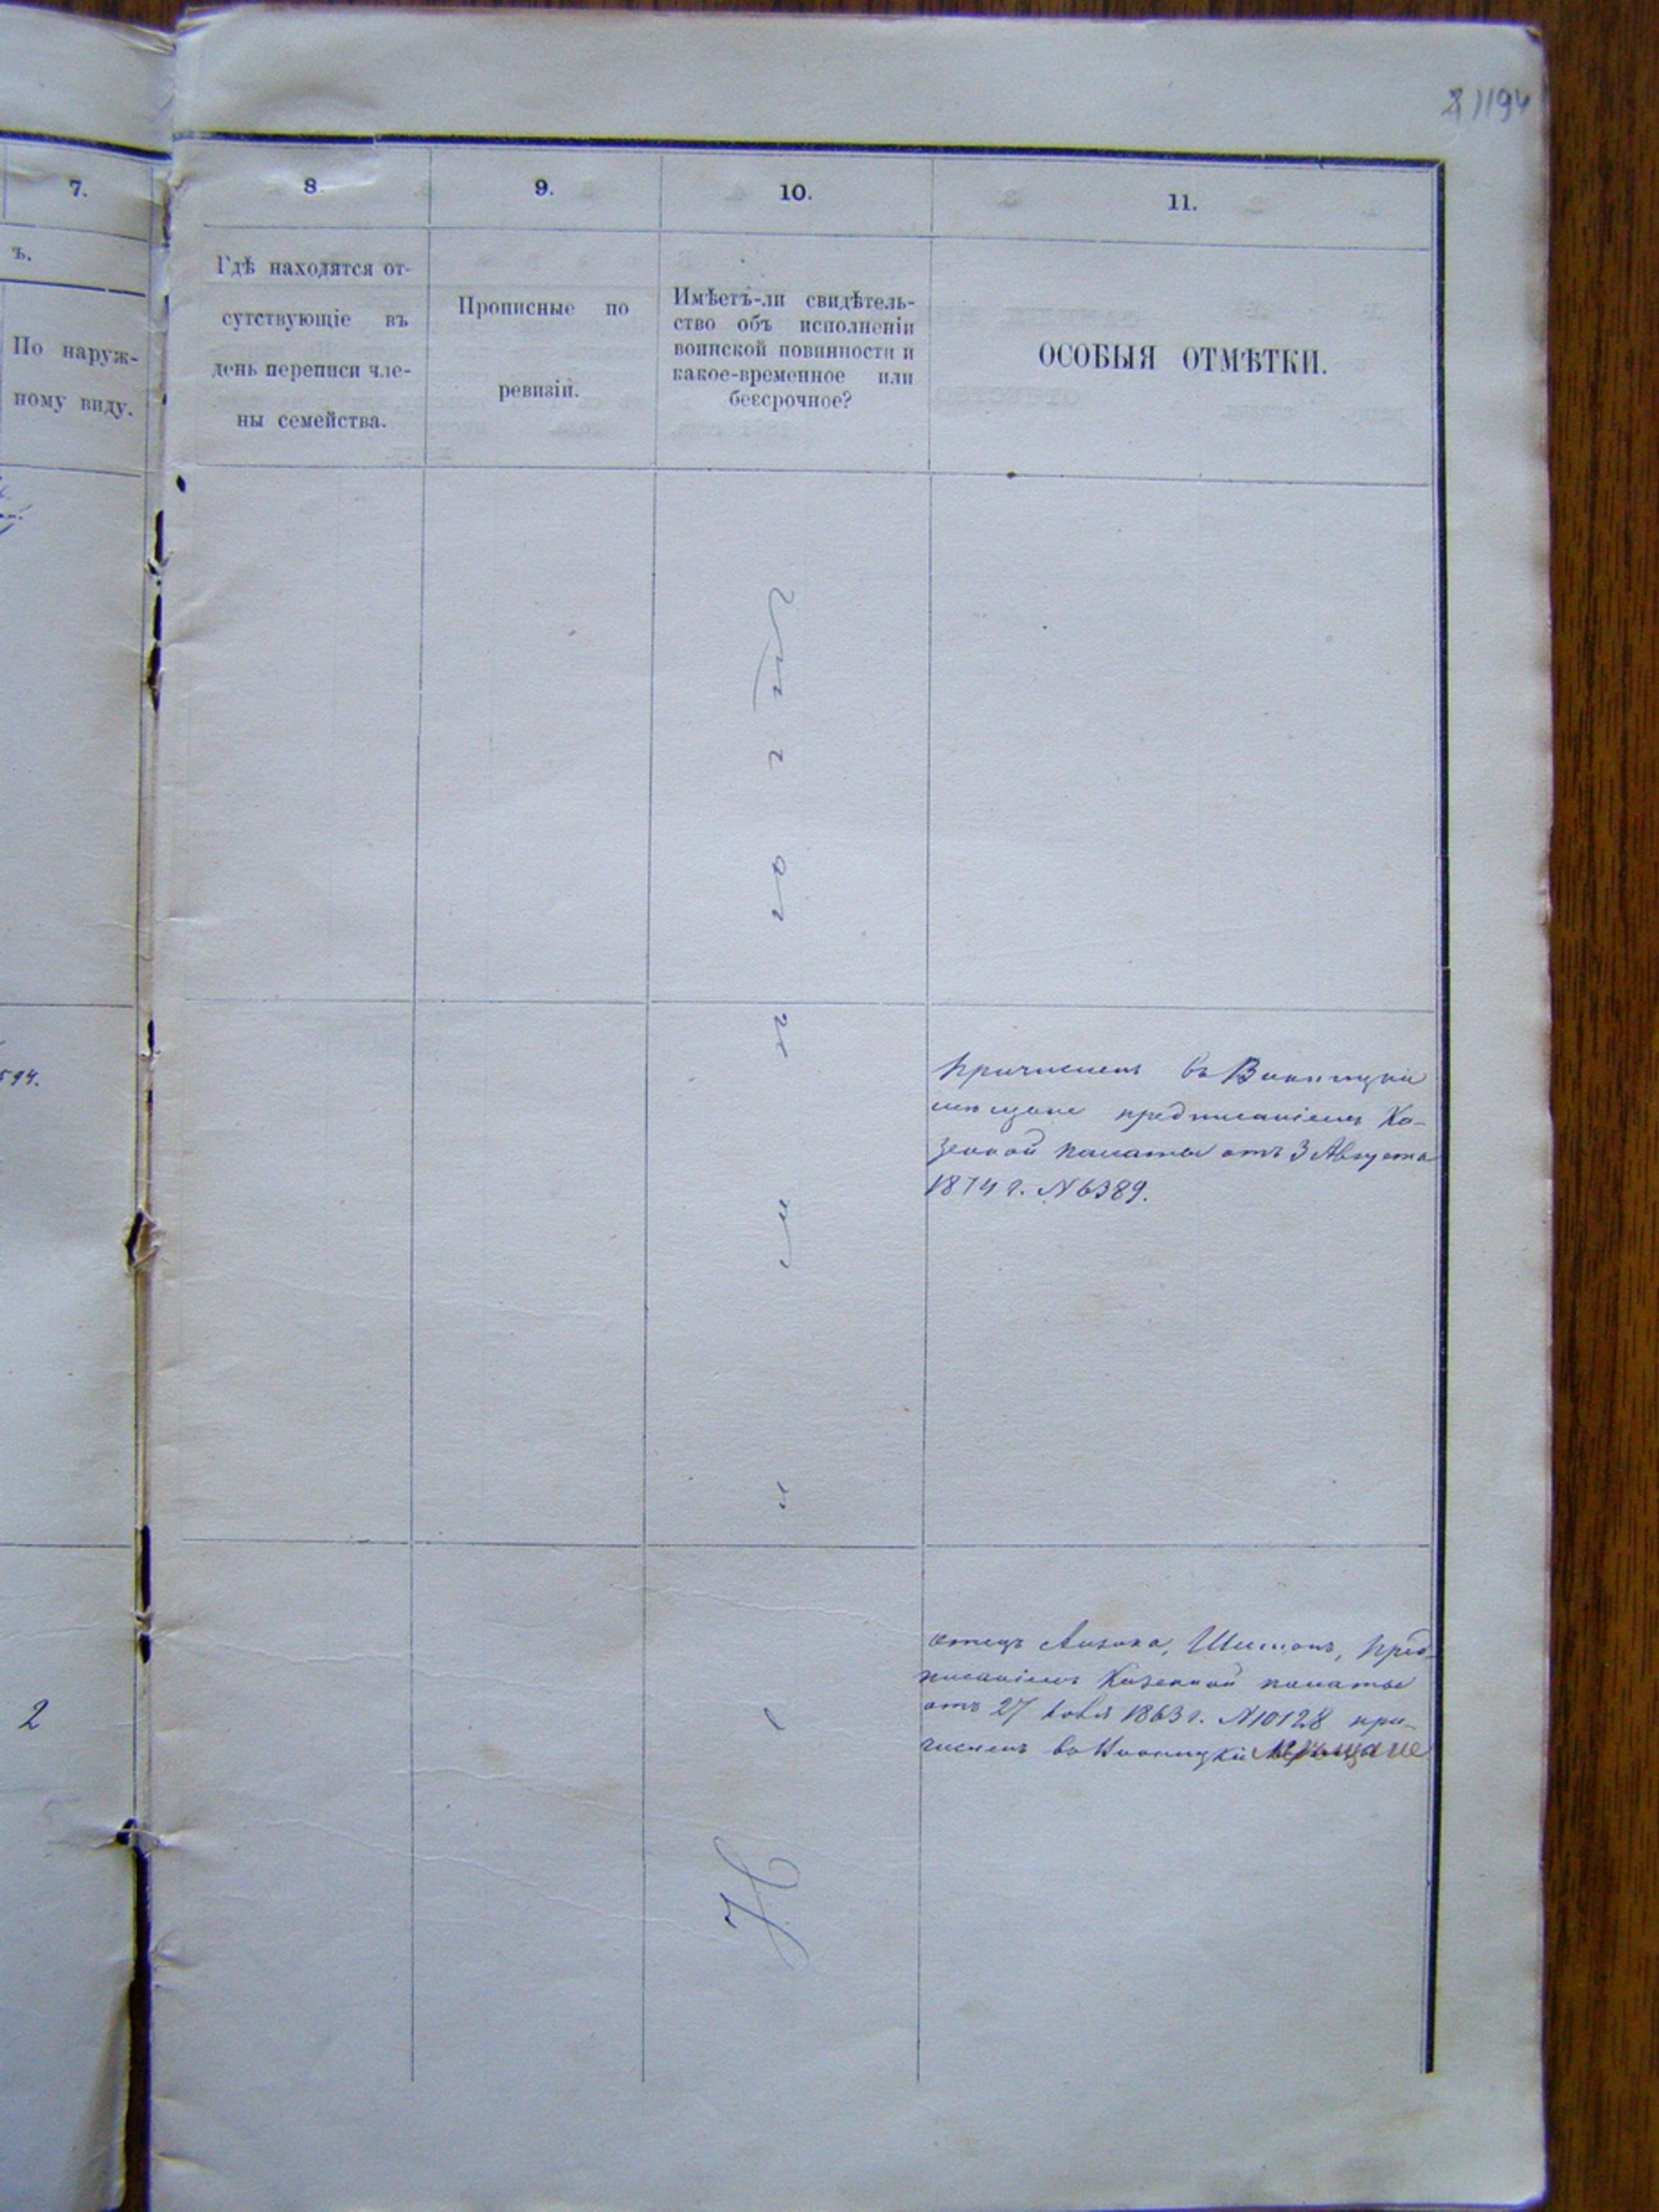 194
7.
8
9.
10.
11.
ъ.
По наруж-
ному виду.
Гдѣ находятся от-
сутствующіе въ
день переписи чле-
ны семейства.
Прописные по
ревизіи.
Имѣетъ-ли свидѣтель-
ство объ исполненіи
воинской повинности и
какое-временное или
безсрочное?
ОСОБЫЯ ОТМѢТКИ.
594.
2
Причисленъ въ Винницкіе
мѣщане предписаніемъ Ка-
зенной палаты отъ 3 Августа
1874 г. N 6389.
отецъ Шимонъ, пред-
писаніемъ Казенной палаты
отъ 27 1863 г. N 10128 при-
численъ въ Винницкіе мѣщане